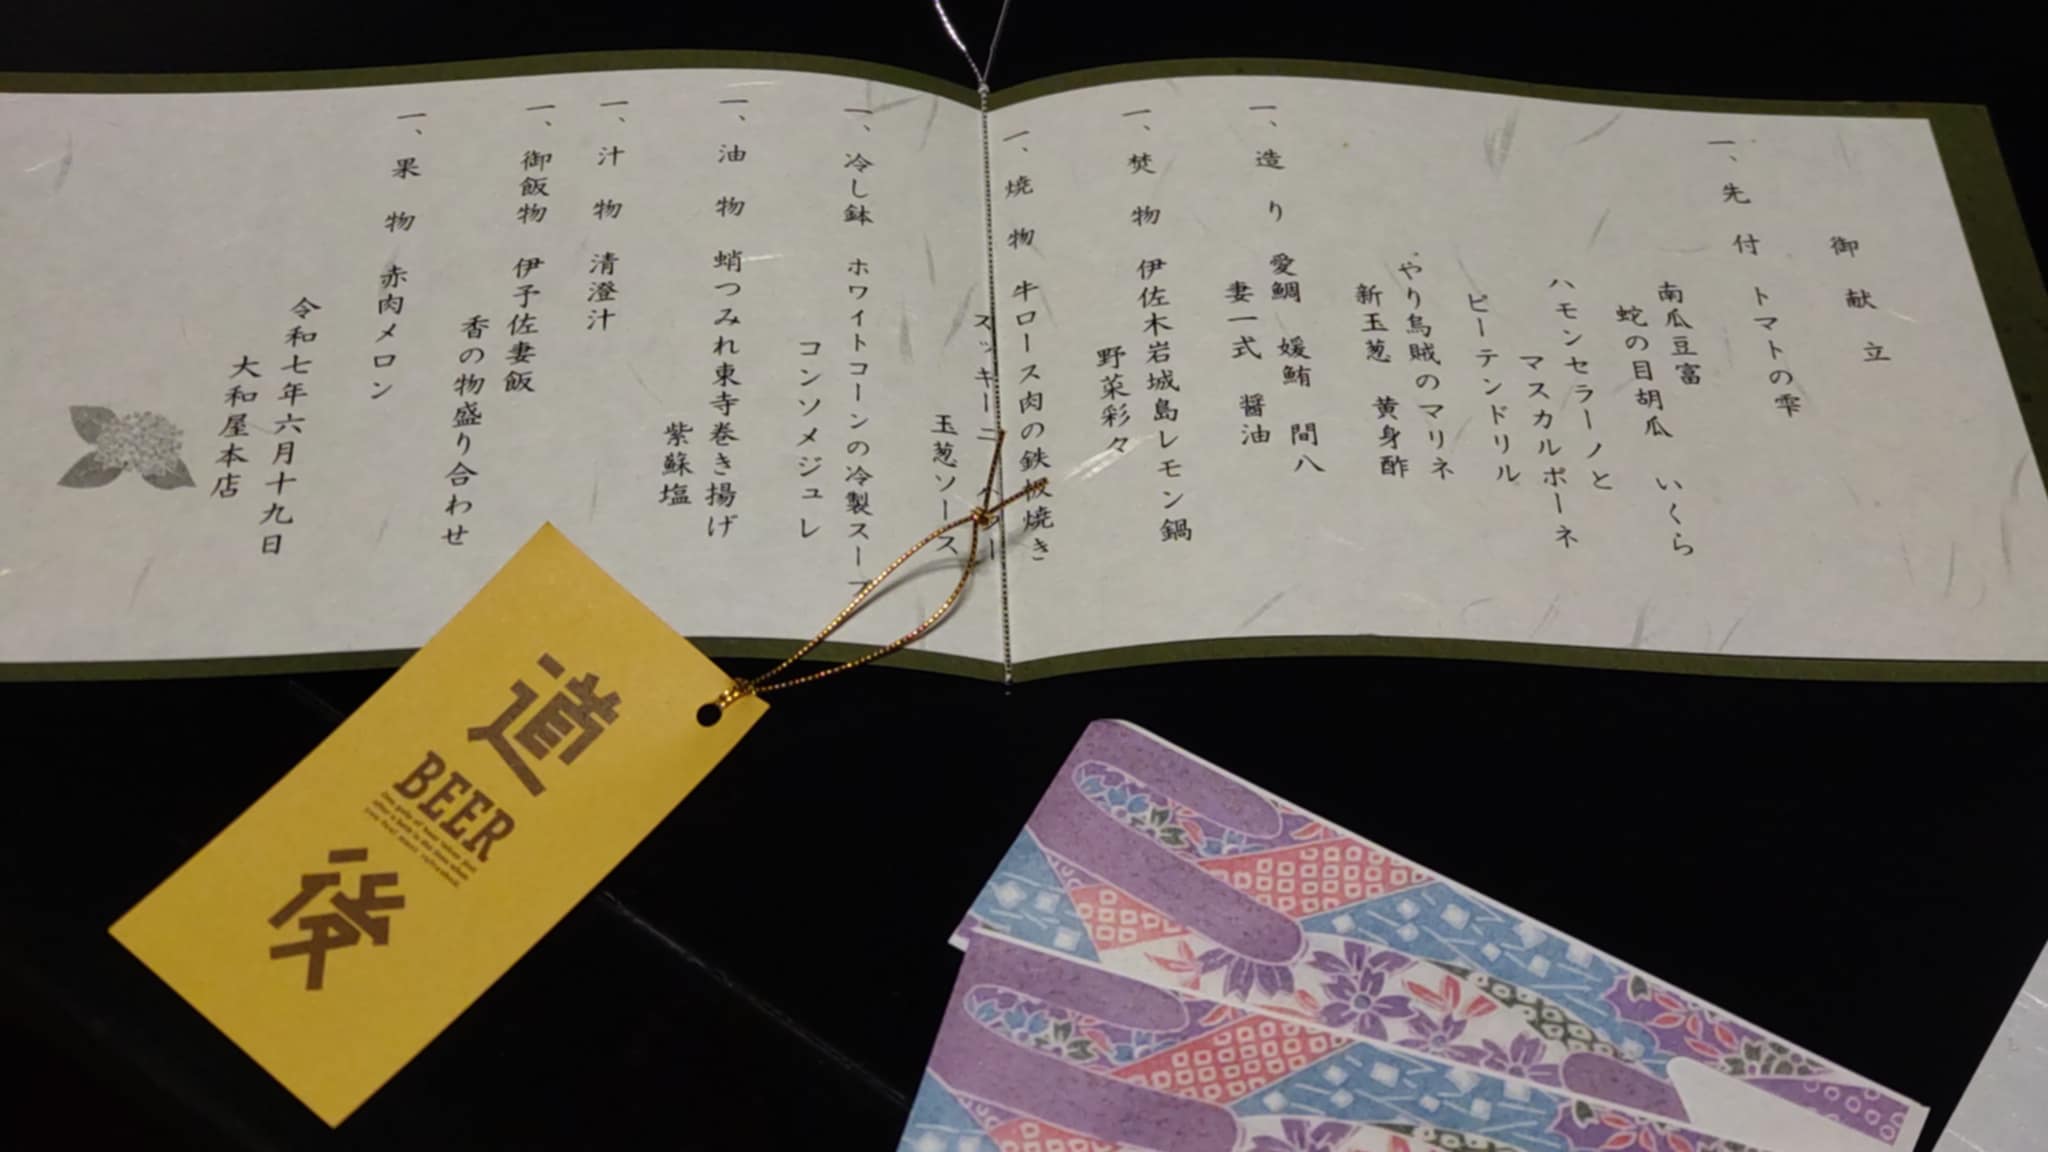 御献立
一、先付 トマトの雫
南瓜豆富
蛇の目胡瓜 いくら
ハモンセラーノと
マスカルポーネ
ピーテンドリル
やり烏賊のマリネ
新玉葱 黄身酢
一、造り 愛鯛 媛鮪 間八
妻一式 醤油
一、焚物 伊佐木岩城島レモン鍋
野菜彩々
一、焼物 牛ロース肉の鉄板焼き
ズッキーニ
玉葱ソース
一、冷し鉢 ホワイトコーンの冷製スープ
コンソメジュレ
一、油物 蛸つみれ東寺巻き揚げ
紫蘇塩
一、汁物 清澄汁
一、御飯物 伊予佐妻飯
香の物盛り合わせ
一、果物 赤肉メロン
令和七年六月十九日
大和屋本店
道後
BEER